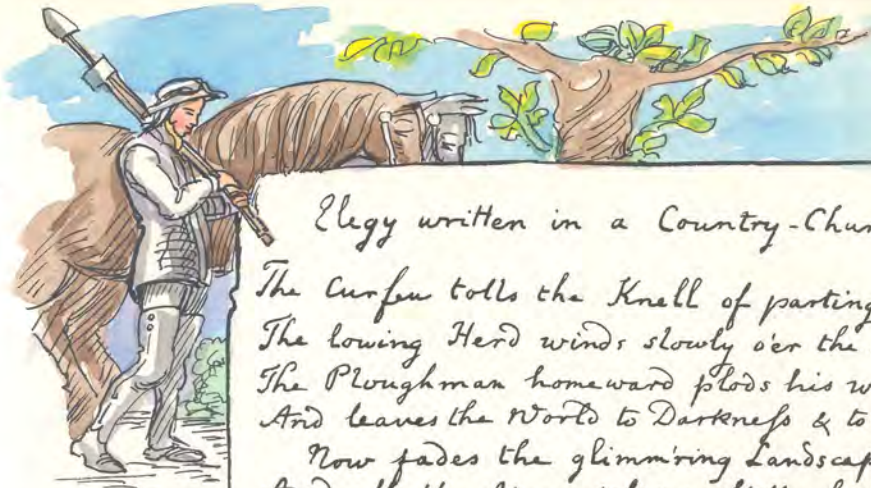 Elegy written in a Country-Chur
The Curfeu tolls the Knell of parting
The lowing Herd winds slowly o'er the
The Ploughman homeward plods his w
And leaves the World to Darkneſs & to
Now fades the glimm'ring Landscap